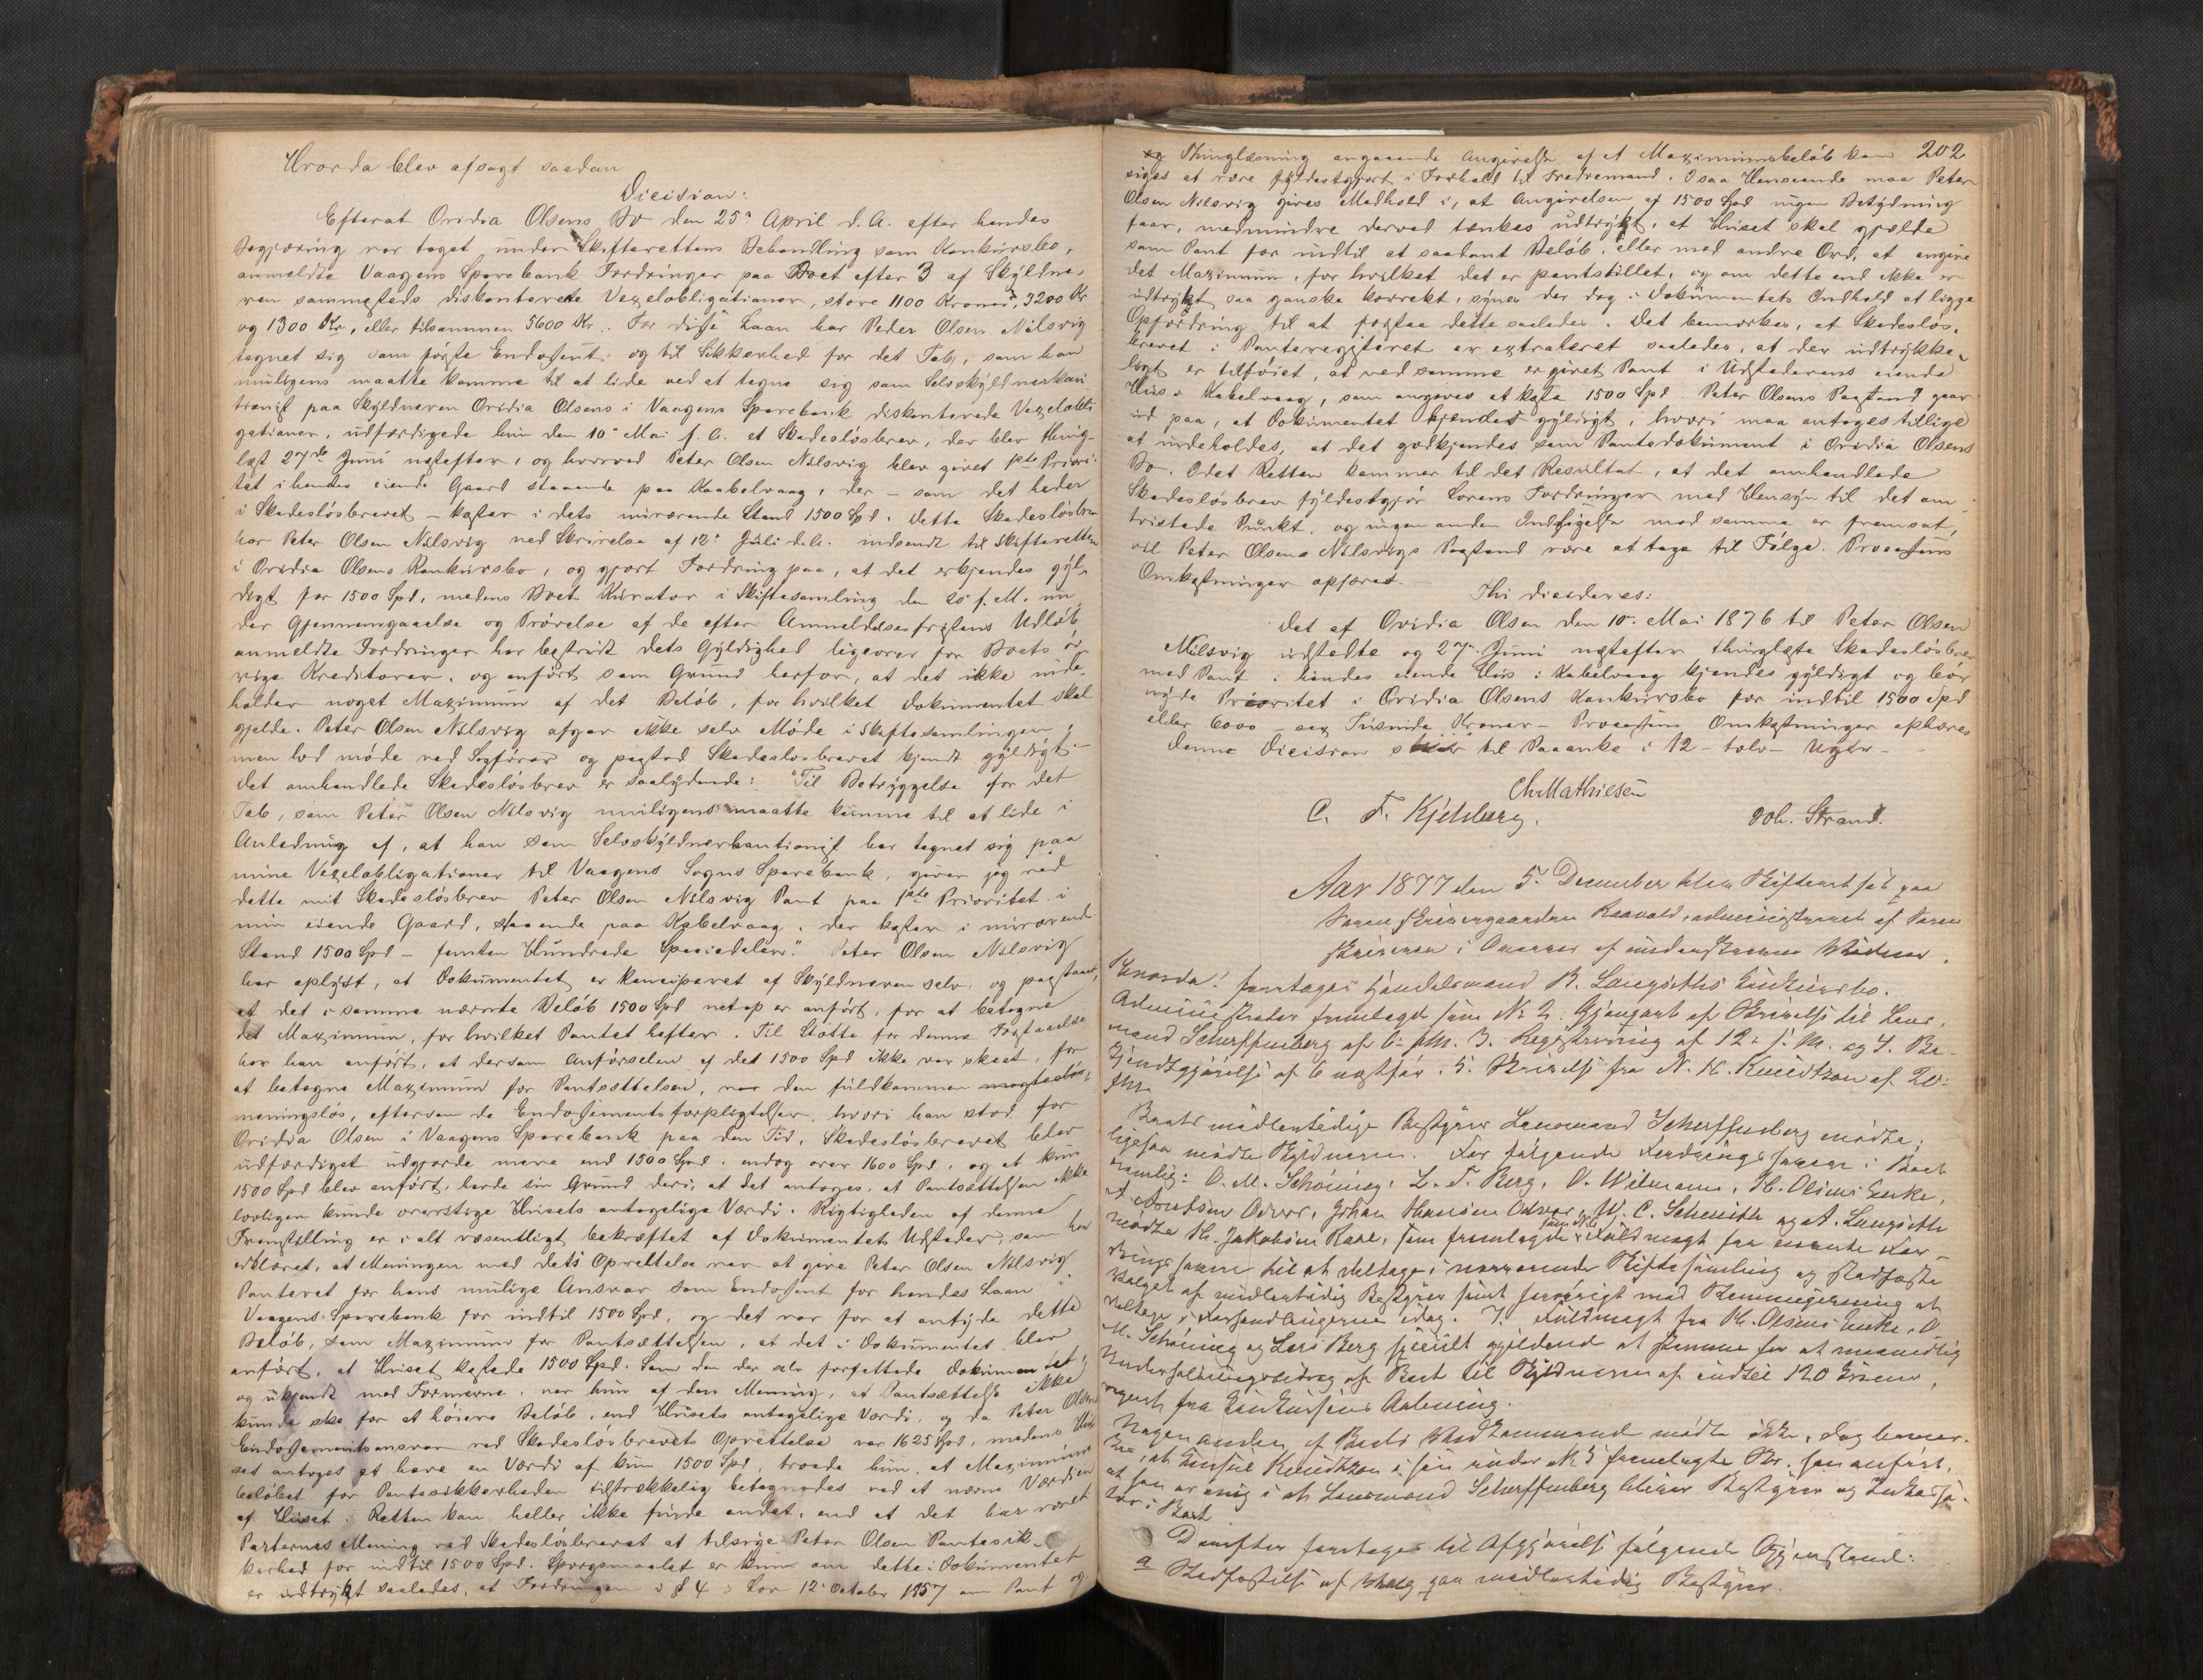 Hvorda blev afsagt saadan
Dicision:
Efterat Ovidia Olsens Bo den 25de April d.A. efter hendes
Begjæring var taget under Skifterettens Behandling som Konkursbo,
anmeldte Vaagens Sparebank Fordringer paa Boet efter 3 af Skyldne-
ren sammesteds diskonterede Vexelobligationer, store 1100 Kroner, 3200 Kr
og 1300 Kr, eller tilsammen 5600 Kr. For disse Laan har Peder Olsen Nilsvig
tegnet sig som første Endossent; og til Sikkerhed for det Tab, som han
muligens maatte komme til at lide ved at tegne sig som Selvskyldnerkau-
tionist paa Skyldneren Ovidia Olsens i Vaagens Sparebank diskonterede Vexelobli
gationer, udfærdigede hun den 10de Mai f.A. et Skadesløsbrev, der blev thing-
læst 27de Juni næstefter, og hvorved Peter Olsen Nilsvig blev givet 1ste Priori-
tet i hendes eiende Gaard staaende paa Kaabelvaag, der - som det heder
i Skadesløsbrevet - koster i dets nuværende Stand 1500 Spd. Dette Skadesløsbrev
har Peter Olsen Nilsvig ved Skrivelse af 12te Juli d.A. indsendt til Skifteretten
i Ovidia Olsens Konkursbo, og gjort Fordring paa, at det erkjendes gyl-
digt for 1500 Spd, medens Boets Kurator i Skiftesamling den 25 f.M. un-
der Gjennemgaaelse og Prøvelse af de efter Anmeldelsesfristens Udløb
anmeldte Fordringer har bestridt dets Gyldighed ligeover for Boets øv-
rige Kreditorer, og anført som Grund herfor, at det ikke inde-
holder noget Maximum af det Beløb, for hvilket Dokumentet skal
gjelde. Peter Olsen Nilsvig afgav ikke selv Møde i Skiftesamlingen,
men lod møde ved Sagfører og paastod Skadesløsbrevet kjendt gyldigt.-
Det omhandlede Skadesløsbrev er saalydende: "Til Betryggelse for det
Tab, som Peter Olsen Nilsvig muligens maatte komme til at lide i
Anledning af, at han som Selvskyldnerkautionist har tegnet sig paa
mine Vexelobligationer til Vaagens Sogns Sparebank, giver jeg ved
dette mit Skadesløsbrev Peter Olsen Nilsvig Pant paa 1ste Prioritet i
min eiende Gaard, staaende paa Kabelvaag, der koster i nuværende
Stand 1500 Spd - femten Hundrede Speciedaler." Peter Olsen Nilsvig
har oplyst, at Dokumentet er konciperet af Skyldneren selv, og paastaaet,
at det i samme nævnte Beløb 1500 Spd netop er anført, for at betegne
det Maximum, for hvilket Pantet hefter. Til Støtte for denne Forstaaelse
har han anført, at dersom Anførselen af det 1500 Spd ikke var skeet, for
at betegne Maximum for Pantsættelsen, var den fuldkommen
meningsløs, eftersom de Endossementsforpligtelser, hvori han stod for
Ovidia Olsen i Vaagens Sparebank paa den Tid, Skadesløsbrevet blev
udfærdiget udgjorde mere end 1500 Spd, endog over 1600 Spd, og at kun
1500 Spd blev anført, havde sin Grund deri, at det antoges, at Pantsættelsen ikke
lovligen kunde overstige Husets antagelige Værdi. Rigtigheden af denne
Fremstilling er i alt væsentligt bekræftet af Dokumentets Udsteder, som har
erklæret, at Meningen med dets Oprettelse var at give Peter Olsen Nilsvig
Panteret for hans mulige Ansvar som Endossent for hendes Laan i
Vaagens Sparebank for indtil 1500 Spd, og det var for at antyde dette
Beløb, som Maximum for Pantsættelsen, at det i Dokumentet blev
anført, at Huset kostede 1500 Spd. Som den der selv forfattede Dokumentet,
og ukjendt med Formerne, var hun af den Mening, at Pantsættelse ikke
kunde ske for et høiere Beløb, end Husets antagelige Værdi, og da Peter Olsens
Endossementsansvar ved Skadesløsbrevets Oprettelse var 1625 Spd, medens Hu-
set antoges at have en Værdi af kun 1500 Spd, troede hun, at Maximums
beløbet for Pantesikkerheden tilstrækkelig betegnedes ved at nævne Værdien
af Huset. Retten kan heller ikke finde andet, end at det har været
Parternes Mening ved Skadesløsbrevet at tilsige Peter Olsen Pantesik-
kerhed for indtil 1500 Spd. Spørgsmaalet er kun om dette i Dokumentet
er udtrykt saaledes, at Fordringen i § 4 i Lov 12te October 1857 om Pant og
202
og Thinglæsning angaaende Angivelse af et Maximumsbeløb kan
siges at være fyldestgjort i Forhold til Tredjemand. I saa Henseende maa Peter
Olsen Nilsvig gives Medhold i, at Angivelsen af 1500 Spd ingen Betydning
faar, medmindre derved tænkes udtrykt, at Huset skal gjælde
som Pant for indtil et saadant Beløb, eller med andre Ord, at angive
det Maximum, for hvilket det er pantstillet, og om dette end ikke er
udtrykt saa ganske korrekt, synes der dog i Dokumentets Indhold at ligge
Opfordring til at forstaa dette saaledes. Det bemærkes, at Skadesløs-
brevet i Panteregisteret er extraheret saaledes, at der udtrykke-
ligt er tilføiet, at ved samme er givet Pant i Udstederens eiende
Hus i Kabelvaag, som angives at koste 1500 Spd. Peter Olsens Paastand gaar
ud paa, at Dokumentet kjendes gyldigt, hvori maa antages tillige
at indeholdes, at det godkjendes som Pantedokument i Ovidia Olsens
Bo. Idet Retten kommer til det Resultat, at det omhandlede
Skadesløsbrev fyldestgjør Lovens Fordringer med Hensyn til det om-
tvistede Punkt, og ingen anden Indsigelse mod samme er fremsat,
vil Peter Olsens Nilsvigs Paastand være at tage til Følge. Processens
Omkostninger ophæves.
Thi dicideres:
Det af Ovidia Olsen den 10de Mai 1876 til Peter Olsen
Nilsvig udstedte og 27de Juni næstefter thinglæste Skadesløsbrev
med Pant i hendes eiende Hus i Kabelvaag kjendes gyldigt og bør
nyde Prioritet i Ovidia Olsens Konkursbo for indtil 1500 Spd
eller 6000 - sex Tusinde Kroner - Processens Omkostninger ophæves
Denne Dicision staar til Paaanke i 12 - tolv - Uger -
Ch. Mathiesen
C. F. Kjelsberg. Joh. Strand.
Aar 1877 den 5te December blev Skifteret sat paa
Sorenskrivergaarden Raavold, administreret af Soren
skriveren i Overvær af undertegnede Vidner.
Hvorda: foretages Handelsmand R. Langsiths Konkursbo.
Administrator fremlagde som No 2. Gjenpart af Skrivelse til Lens-
mand Scharffenberg af 6te f.M. 3. Registrering af 12te f. M. og 4. Be-
kjendtgjørelse af 6 næstfør. 5. Skrivelse fra N. H. Knudtzon af 20de
f.M.
Boets midlertidige Bestyrer Lensmand Scharffenberg mødte;
ligesaa mødte Skyldneren. For følgende Fordringshavere i Boet
nemlig: O. M. Schöning, L. T. Berg, O. Wilmann, H. Olsens Enke,
Johan Hansen, W. C. Schmith og A. Langsith
mødte H. Jakobsen Rare, som fremlagde som No 6 Fuldmagt fra nævnte For-
dringshavere til at deltage i nærværende Skiftesamling og stadfæste
Valget af midlertidig Bestyrer samt forøvrigt med Stemmegivning at
deltage i Forhandlingerne idag. 7. Fuldmagt fra H. Olsens Enke, O
M. Schöning og Lars Berg specielt gjeldende at stemme for et maanedlig
Underholdningsbidrag af Boet til Skyldneren af indtil 120 Kroner,
regnet fra Konkursens Aabning.
Nogen anden af Boets Vedkommende mødte ikke, dog bemær-
kes, at Konsul Knudtzon i sin under No 5 fremlagte Skr. har anført,
at han er enig i at Lensmand Scharffenberg bliver Bestyrer og Inkassa-
tor i Boet
Derefter foretages til Afgjørelse følgende Gjenstand:
a Stadfæstelse af Valg paa midlertidig Bestyrer.